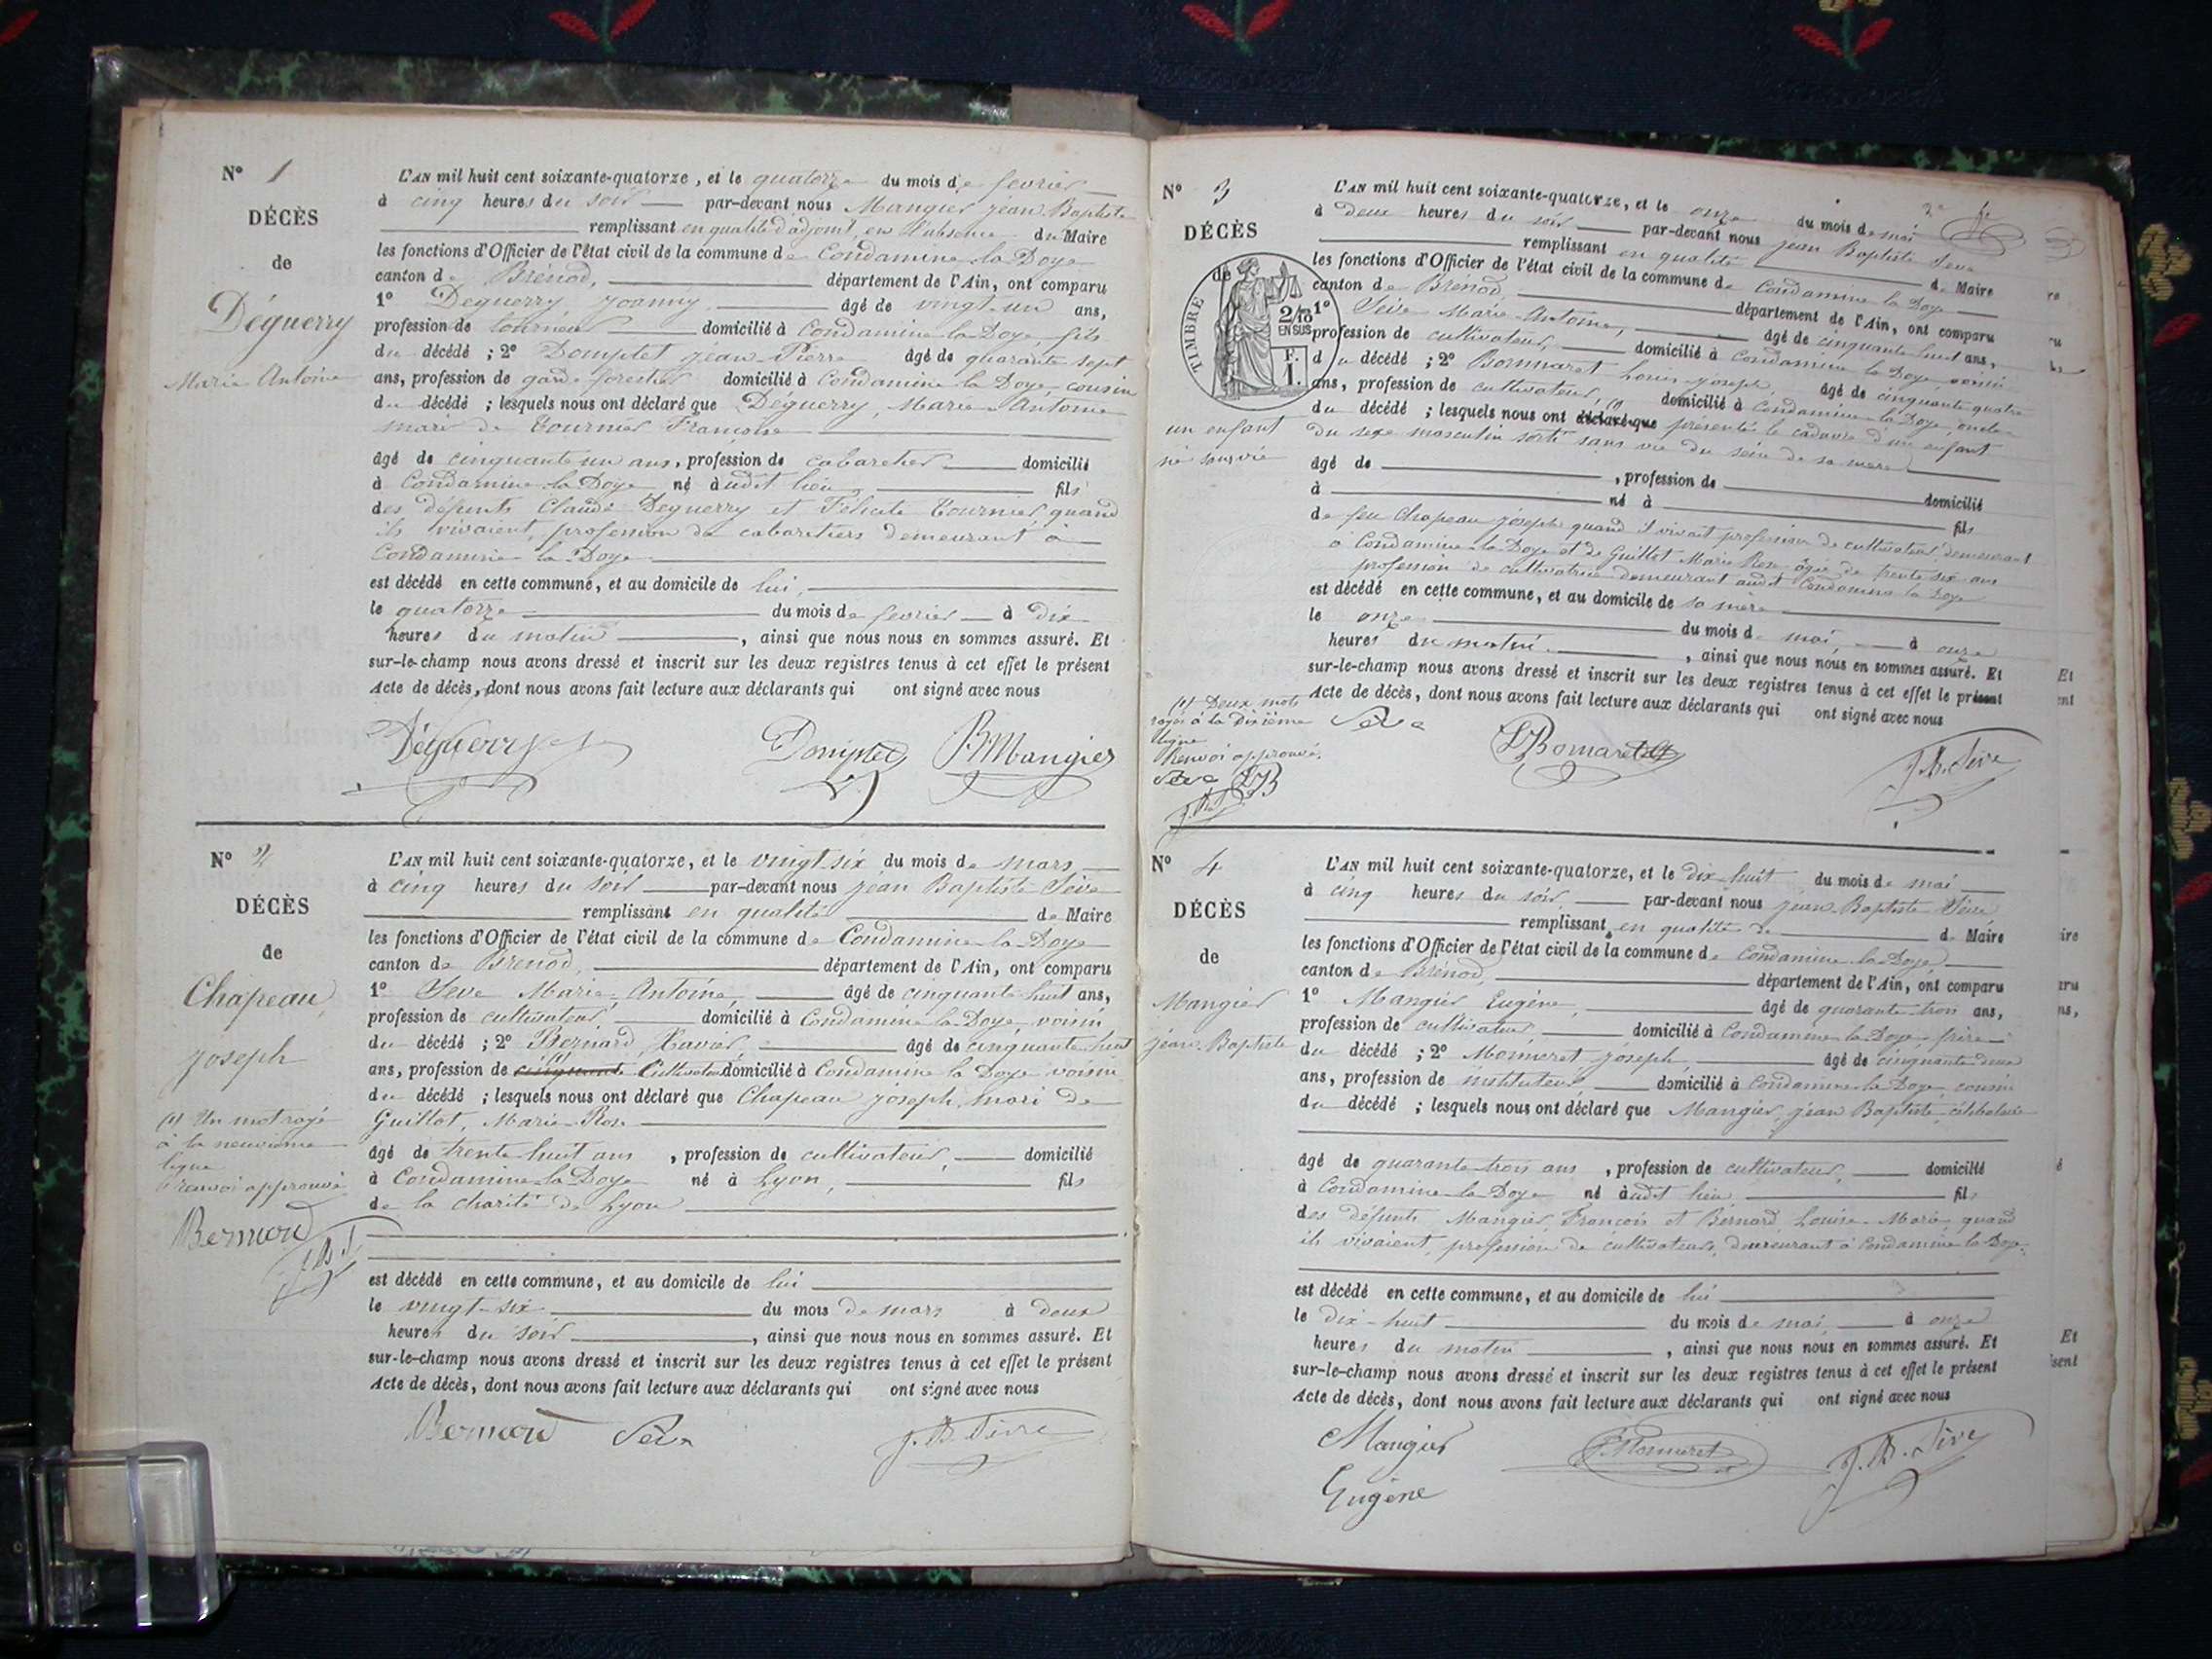 N° 1
DÉCÈS
de
Déguerry
Marie Antoine
L'AN mil huit cent soixante-quatorze, et le quatorze du mois de fevrier
à cinq heures du soir par-devant nous Mangier jean Baptiste
remplissant en qualité d'adjoint, en l'absence du Maire
les fonctions d'Officier de l'état civil de la commune de Condamine la Doye
canton de Brénod, département de l'Ain, ont comparu
1° Deguerry Joanny âgé de vingt-un ans,
profession de tourneur domicilié à Condamine la Doye, fils
du décédé ; 2° Domptet jean-Pierre âgé de quarante sept
ans, profession de garde forestier domicilié à Condamine la Doye, cousin
du décédé ; lesquels nous ont déclaré que Déguerry, Marie-Antoine
mari de Tournier Françoise
âgé de cinquante un ans, profession de cabaretier domicilié
à Condamine la Doye né àudit lieu, fils
des défunts Claude Deguerry et Félicité Tournier quand
ils vivaient, profession de cabaretiers demeurant à
Condamine la Doye
est décédé en cette commune, et au domicile de lui,
le quatorze du mois de fevrier à dix
heures du matin, ainsi que nous nous en sommes assuré. Et
sur-le-champ nous avons dressé et inscrit sur les deux registres tenus à cet effet le présent
Acte de décès, dont nous avons fait lecture aux déclarants qui ont signé avec nous
Déguerry Domptet JB Mangier
N° 2
DÉCÈS
de
Chapeau,
Joseph
(1) Un mot rayé
à la neuvième
ligne
renvoi approuvé
Bernard
J.B.S
L'AN mil huit cent soixante-quatorze, et le vingt-six du mois de mars
à cinq heures du soir par-devant nous jean Baptiste Sève
remplissant en qualité de Maire
les fonctions d'Officier de l'état civil de la commune de Condamine la Doye
canton de Brenod, département de l'Ain, ont comparu
1° Seve Marie-Antoine, âgé de cinquante-huit ans,
profession de cultivateur, domicilié à Condamine la Doye, voisin
du décédé ; 2° Bernard, Xavier, âgé de cinquante huit
ans, profession de cinquante (1) Cultivateur domicilié à Condamine la Doye voisin
du décédé ; lesquels nous ont déclaré que Chapeau joseph, mari de
Guillot, Marie-Rose
âgé de trente huit ans, profession de cultivateur, domicilié
à Condamine la Doye né à Lyon, fils
de la charité de Lyon
est décédé en cette commune, et au domicile de lui
le vingt-six du mois de mars à deux
heures du soir, ainsi que nous nous en sommes assuré. Et
sur-le-champ nous avons dressé et inscrit sur les deux registres tenus à cet effet le présent
Acte de décès, dont nous avons fait lecture aux déclarants qui ont signé avec nous
Bernard Seve J.B. Sève
N° 3
DÉCÈS
de
TIMBRE
2/10
EN SUS
F.
1.
un enfant
né sans vie
L'AN mil huit cent soixante-quatorze, et le onze du mois de mai
à deux heures du soir par-devant nous jean Baptiste Seve
remplissant en qualité de Maire
les fonctions d'Officier de l'état civil de la commune de Condamine la Doye
canton de Brenod département de l'Ain, ont comparu
1° Sève Marie-Antoine, âgé de cinquante huit ans,
profession de cultivateur, domicilié à Condamine la Doye, voisin
du décédé ; 2° Bommaret Louis-joseph, âgé de cinquante quatre
ans, profession de cultivateur, domicilié à Condamine la Doye oncle
du décédé ; lesquels nous ont déclaré que (1) présenté le cadavre d'un enfant
du sexe masculin sorti sans vie du sein de sa mère
âgé de , profession de domicilié
à né à fils
de feu Chapeau joseph quand il vivait profession de cultivateur demeurant
à Condamine la Doye et de Guillot Marie Rose âgée de trente six ans
profession de cultivatrice demeurant audit Condamine la Doye
est décédé en cette commune, et au domicile de sa mère
le onze du mois de mai, à onze
heures du matin, ainsi que nous nous en sommes assuré. Et
sur-le-champ nous avons dressé et inscrit sur les deux registres tenus à cet effet le présent
Acte de décès, dont nous avons fait lecture aux déclarants qui ont signé avec nous
(1) Deux mots
rayés à la dixième
ligne
Renvoi approuvé.
Seve LB
J.B.S
Seve J.B. Sève
N° 4
DÉCÈS
de
Mangier
jean-Baptiste
L'AN mil huit cent soixante-quatorze, et le dix-huit du mois de mai
à cinq heures du soir, par-devant nous jean-Baptiste Sève
remplissant en qualité de de Maire
les fonctions d'Officier de l'état civil de la commune de Condamine la Doye
canton de Brénod, département de l'Ain, ont comparu
1° Mangier Eugène, âgé de quarante-trois ans,
profession de cultivateur, domicilié à Condamine la Doye, frère
du décédé ; 2° Monneret joseph, âgé de cinquante deux
ans, profession de instituteur domicilié à Condamine la Doye, cousin
du décédé ; lesquels nous ont déclaré que Mangier, jean Baptiste, célibataire
âgé de quarante-trois ans, profession de cultivateur, domicilié
à Condamine la Doye né àudit lieu fils
des défunts Mangier, François et Bernard Louise-Marie, quand
ils vivaient, profession de cultivateurs, demeurant à Condamine la Doye.
est décédé en cette commune, et au domicile de lui
le dix-huit du mois de mai, à onze
heures du matin, ainsi que nous nous en sommes assuré. Et
sur-le-champ nous avons dressé et inscrit sur les deux registres tenus à cet effet le présent
Acte de décès, dont nous avons fait lecture aux déclarants qui ont signé avec nous
Mangier Monneret J.B. Sève
Eugène